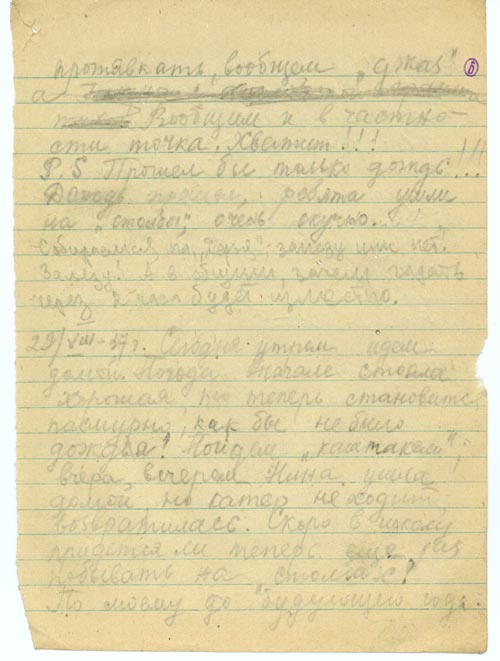 протявкать, вообщем „джаз" 5
а
Вообщим и в частно-
сти точка. Хватит!!!
P.S Прошел бы только дождь!!!
ребята ушли
на „столбы", очень скучно...!
Собираемся на „Перья", залезу или нет.
Залезу! А в общим, зачем гадать
через 2 часа будет известно.
29/VIII-57г. Сегодня утром идем
домой. Погода вначале стояла
хорошая, но теперь становится
пасмурно, как бы не было
дождя! Пойдем „каштаком",
вчера, вечером Нина ушла
домой но катер не ходит,
возвратилась. Скоро в школу
придется ли теперь еще раз
побывать на „столбах"?
По моему до будующего года.